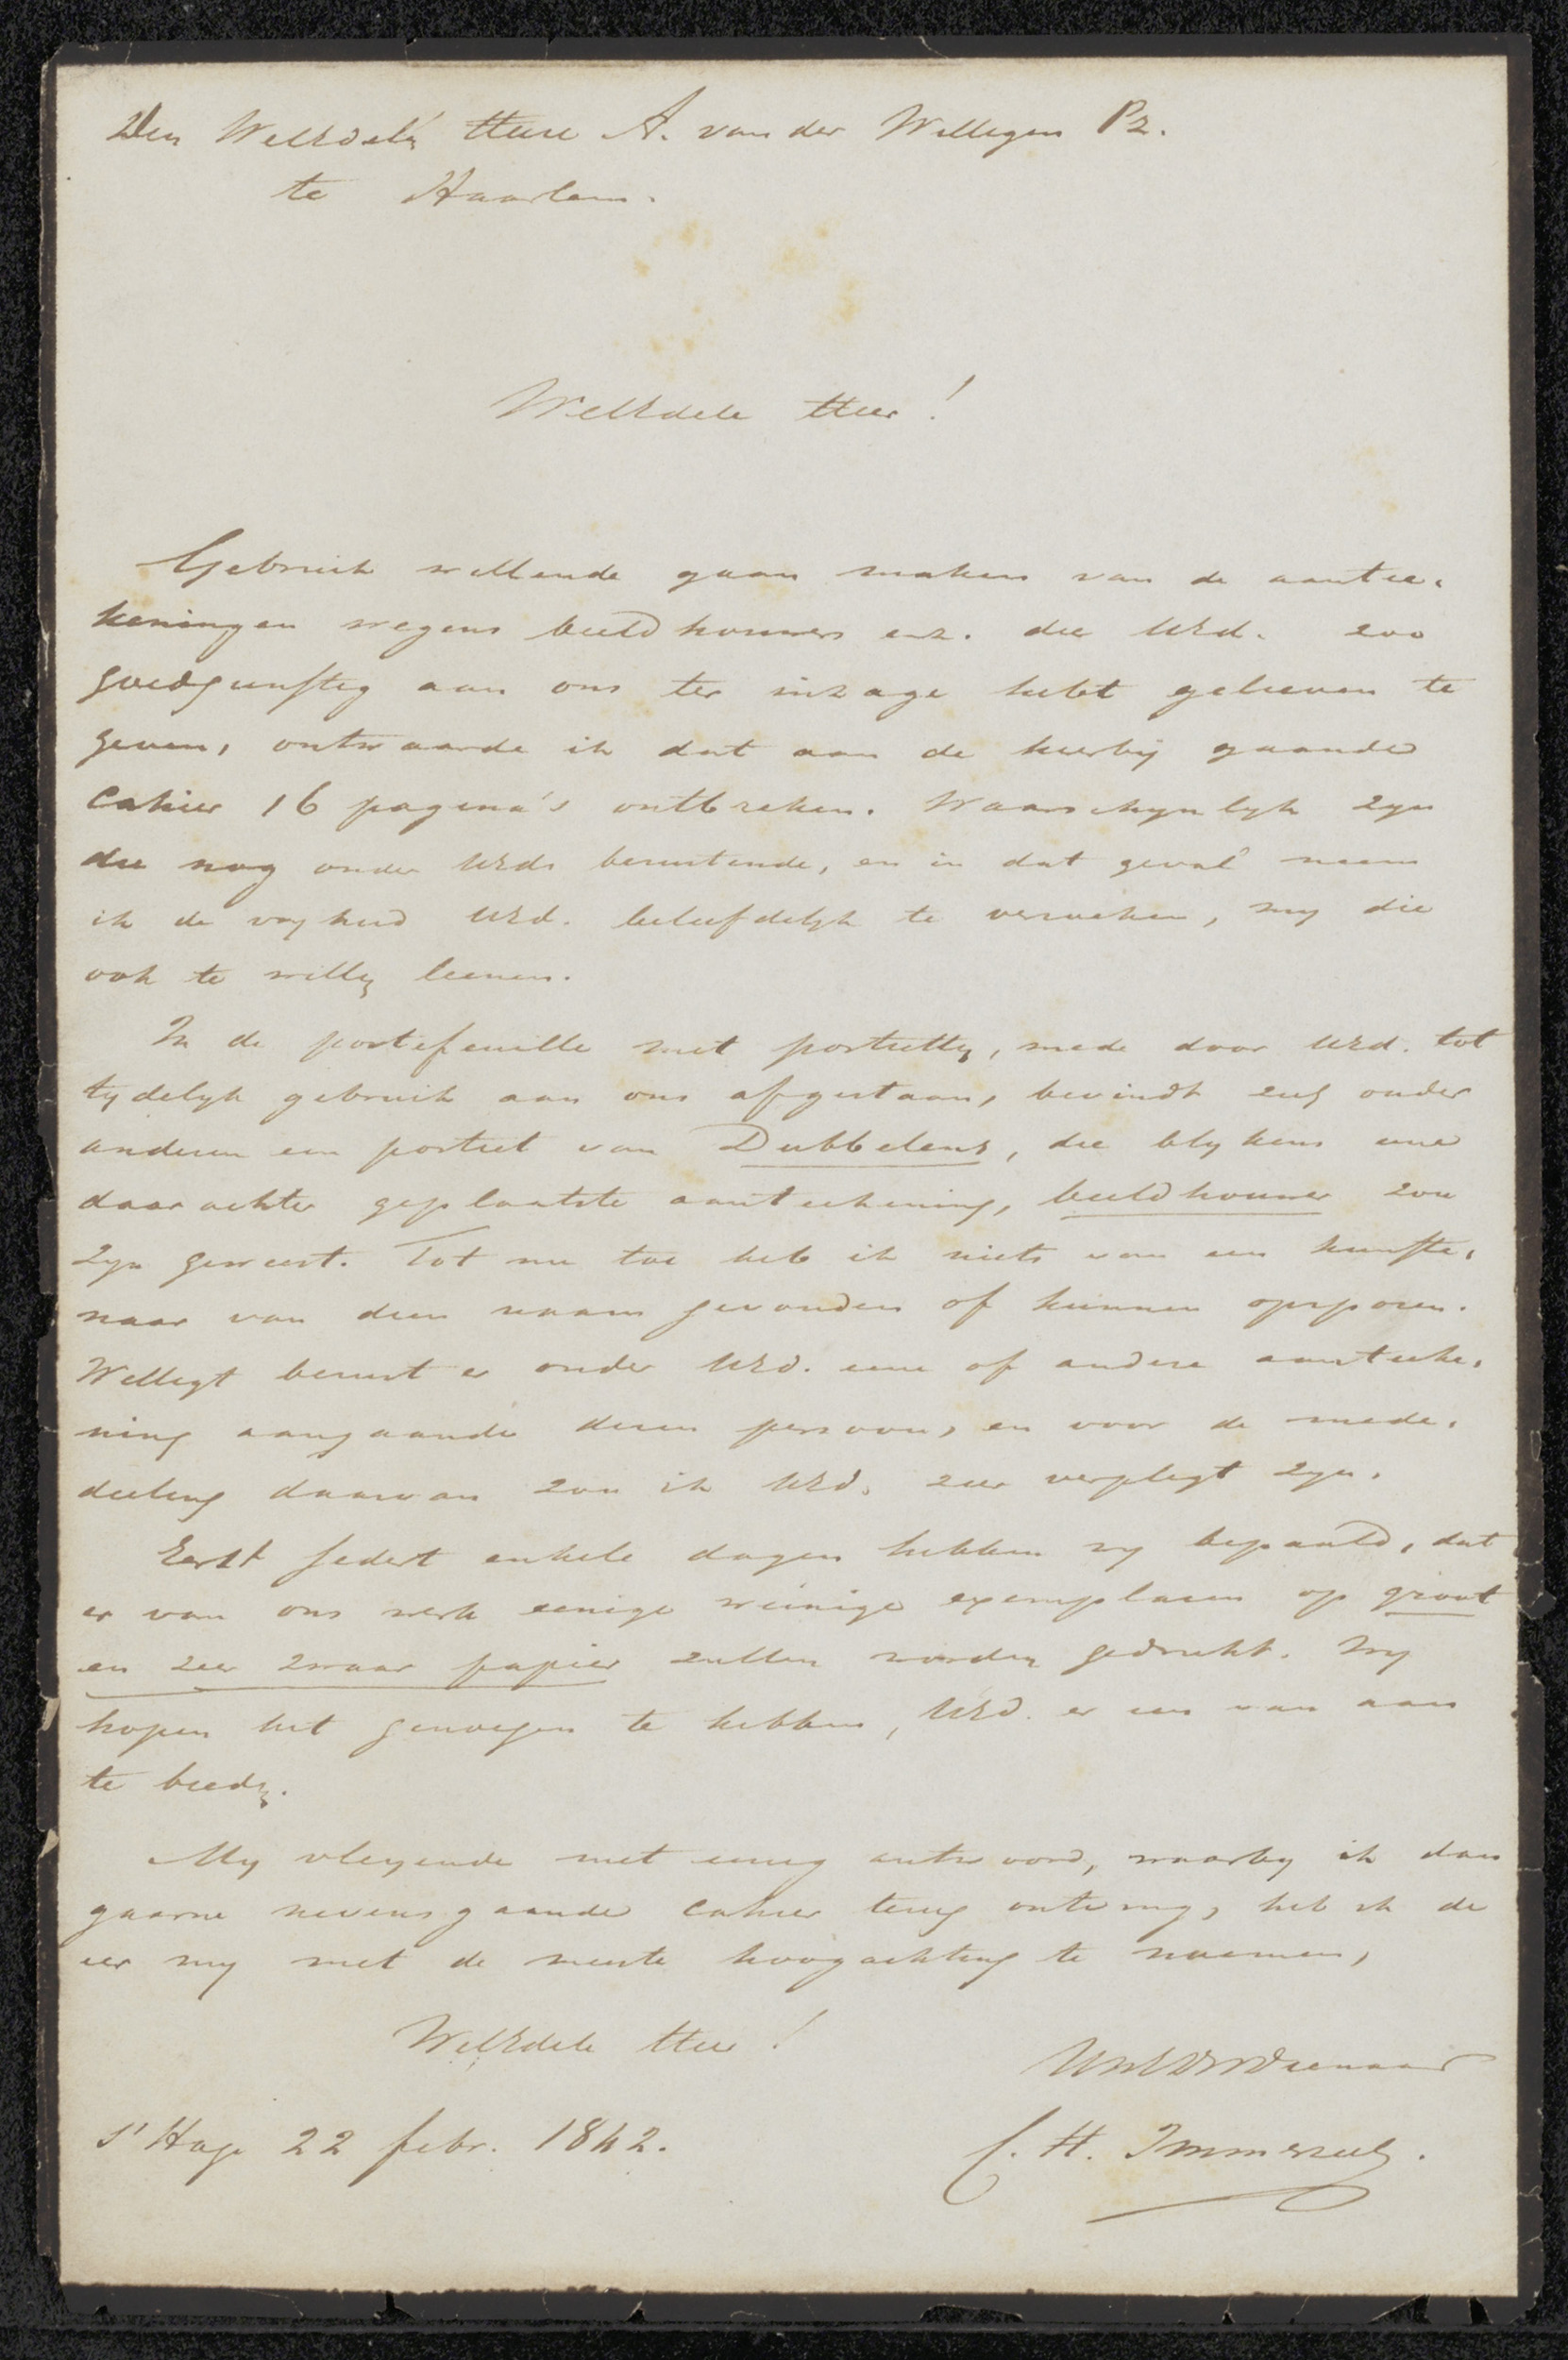 Den WelEdeln Heere A. van der Willigen Pz.
te Haarlem.
WelEdele Heer!
Gebruik willende gaan maken van de aantee-
keningen wegens beeldhouwers enz. die UEd. zoo
goedgunstig aan ons ter inzage hebt gelieven te
geven, ontwaarde ik dat aan de hierbij gaande
Cahier 16 pagina's ontbreken. Waarschynlyk zyn
die nog onder UEds berustende, en in dat geval neem
ik de vryheid UEd. beleefdelyk te verzoeken, my die
ook te willen leenen.
In de portefeuille met portretten, mede door UEd. tot
tydelyk gebruik aan ons afgestaan, bevindt zich onder
anderen een portret van Dubbelens, die blykens eene
daarachter geplaatste aanteekening, beeldhouwer zou
zyn geweest. Tot nu toe heb ik niets van een kunste-
naar van dien naam gevonden of kunnen opsporen.
Welligt berust er onder UEd. eene of andere aanteeke-
ning aangaande dezen persoon, en voor de mede-
deeling daarvan zou ik UEd. zeer verpligt zyn.
Eerst sedert enkele dagen hebben wy bepaald, dat
er van ons werk eenige weinige exemplaren op groot
en zeer zwaar papier zullen worden gedrukt. Wy
hopen het genoegen te hebben, UEd. er een van aan
te bieden.
My vleyende met eenig antwoord, waarby ik dan
gaarne nevensgaande Cahier terug ontving, heb ik de
eer my met de meeste hoogachting te noemen,
WelEdele Heer!
UwEdDWDienaar
s'Hage 22 febr. 1842.
C. H. Immerzeel.